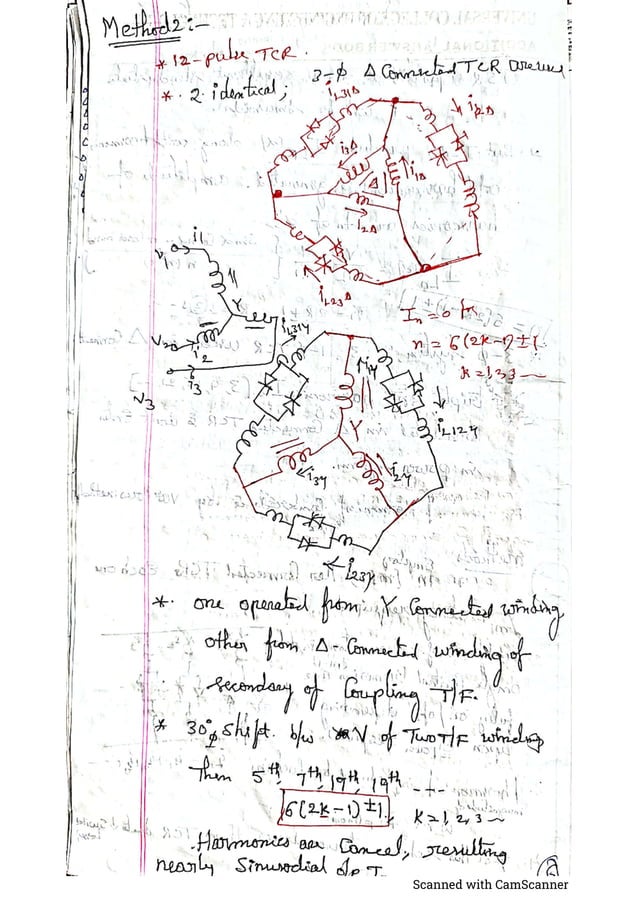 Method 2:-
* 12-pulse TCR.
* 2 identical; 3-ϕ Δ Connected TCR are used
iL31Δ
i12Δ
i3Δ
i1Δ
Δ
i2Δ
iL23Δ
V1 i1
Y
V2 i2
i3
V3
iL31Y
In = 0 for
n = 6(2k-1)±1.
k=1,2,3 ~
i1Y
Y
iL12Y
i3Y
i2Y
iL23Y
*. one operated from Y Connected winding
other from Δ-Connected winding of
secondary of Coupling T/F.
* 30° ϕ shift b/w V of Two T/F winding
Then 5th, 7th, 17th, 19th ---
6(2k-1)±1, k=1,2,3 ~
Harmonics are Cancel, resulting
nearly Sinusodial o/p I
Scanned with CamScanner